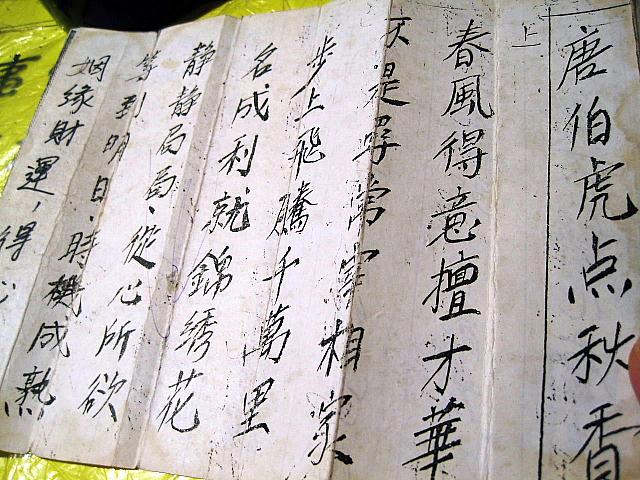 唐伯虎点秋香
上
春風得意擅才華
是尋常宰相家
步上飛騰千萬里
名成利就錦绣花
静静局局、從心所欲
等到明日、時機成熟
姻缘財運,得心